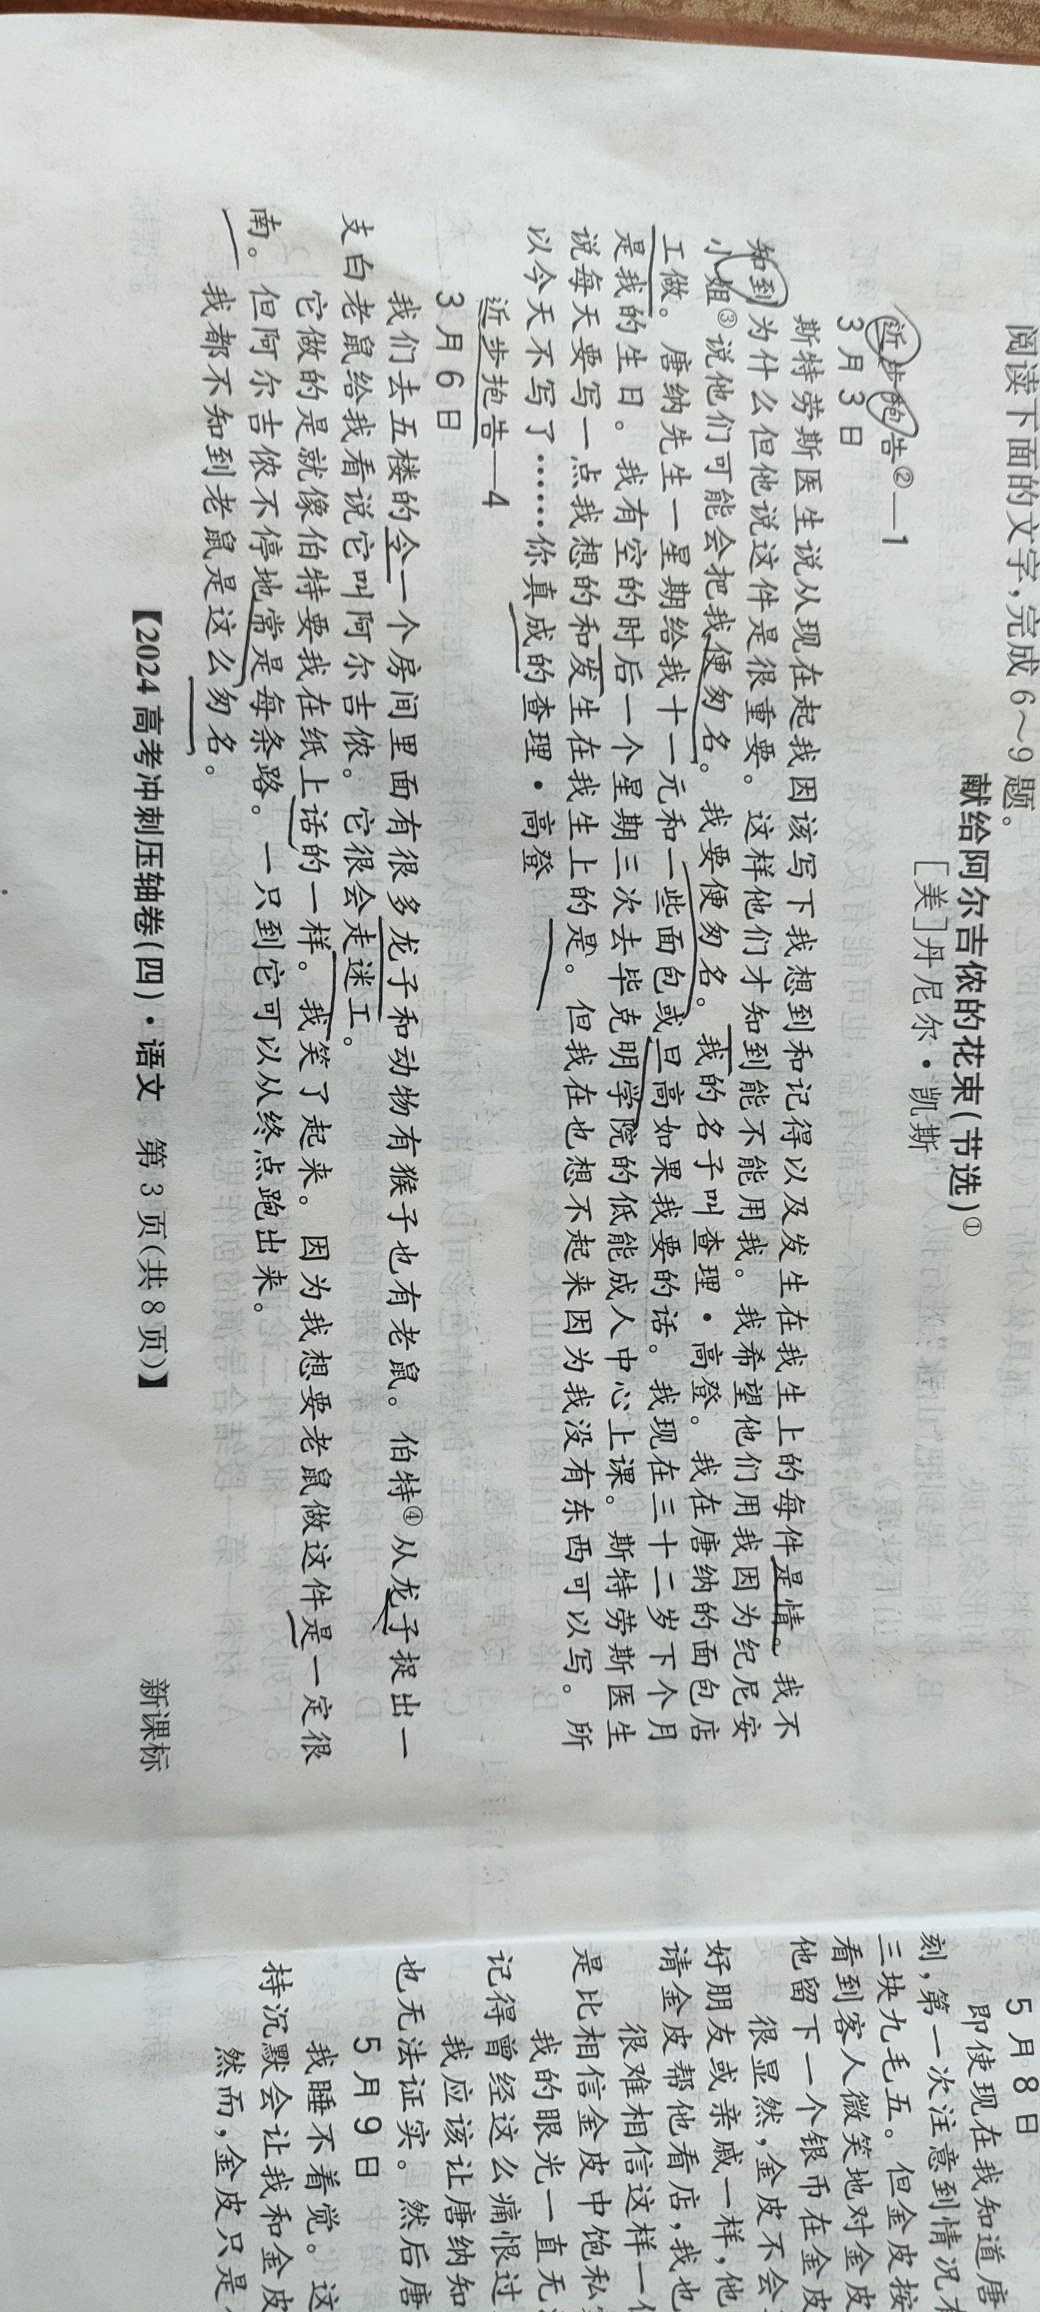 阅读下面的文字,完成6～9题。
献给阿尔吉侬的花束(节选)①
[美]丹尼尔·凯斯
近步抱告②—1
3月3日
斯特劳斯医生说从现在起我因该写下我想到和记得以及发生在我生上的每件是情。我不
知到为什么但他说这件是很重要。这样他们才知到能不能用我。我希望他们用我因为纪尼安
小姐③说他们可能会把我便匆名。我要便匆名。我的名子叫查理·高登。我在唐纳的面包店
工做。唐纳先生一星期给我十一元和一些面包或旦高如果我要的话。我现在三十二岁下个月
是我的生日。我有空的时后一个星期三次去毕克明学院的低能成人中心上课。斯特劳斯医生
说每天要写一点我想的和发生在我生上的是。但我在也想不起来因为我没有东西可以写。所
以今天不写了……你真成的查理·高登
近步抱告—4
3月6日
我们去五楼的令一个房间里面有很多龙子和动物有猴子也有老鼠。伯特④从龙子捉出一
支白老鼠给我看说它叫阿尔吉侬。它很会走迷工。
它做的是就像伯特要我在纸上话的一样。我笑了起来。因为我想要老鼠做这件是一定很
南。但阿尔吉侬不停地常是每条路。一只到它可以从终点跑出来。
我都不知到老鼠是这么匆名。
【2024高考冲刺压轴卷(四)·语文 第3页(共8页)】
新课标
5月8日
即使现在我知道唐
刻,第一次注意到情况
三块九毛五。但金皮按
看到客人微笑地对金皮
他留下一个银币在金皮
很显然,金皮不会
好朋友或亲戚一样,他
请金皮帮他看店,我也
很难相信这样一
是比相信金皮中饱私
我的眼光一直无
记得曾经这么痛恨过
我应该让唐纳知
也无法证实。然后唐
5月9日
我睡不着觉。这
持沉默会让我和金皮
然而,金皮只是